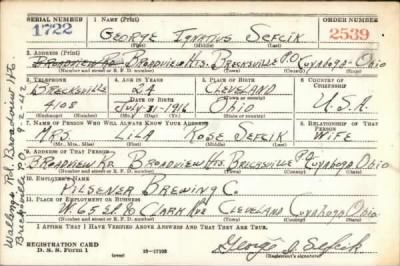 SERIAL NUMBER 1. NAME (Print) ORDER NUMBER
1722 GEORGE IGNATIUS SEFCIK 2539
(First) (Middle) (Last)
2. ADDRESS (Print)
BROADVIEW RD. BROADVIEW HTS. BRECKSVILLE P.O. CUYAHOGA OHIO
(Number and street or R. F. D. number) (Town) (County) (State)
3. TELEPHONE 4. AGE IN YEARS 5. PLACE OF BIRTH 6. COUNTRY OF CITIZENSHIP
BRECKSVILLE 24 CLEVELAND
(Town or county)
4108 JULY 31-1916 OHIO U.S.A.
(Mo.) (Day) (Yr.) (State or country)
7. NAME OF PERSON WHO WILL ALWAYS KNOW YOUR ADDRESS 8. RELATIONSHIP OF THAT PERSON
MRS. LILA ROSE SEFCIK WIFE
(Mr., Mrs., Miss) (First) (Middle) (Last)
9. ADDRESS OF THAT PERSON
BROADVIEW RD. BROADVIEW HTS. BRECKSVILLE P.O. CUYAHOGA OHIO
(Number and street or R. F. D. number) (Town) (County) (State)
10. EMPLOYER'S NAME
PILSENER BREWING CO.
11. PLACE OF EMPLOYMENT OR BUSINESS
W. 65 ST. & CLARK AVE CLEVELAND CUYAHOGA OHIO
(Number and street or R. F. D. number) (Town) (County) (State)
I AFFIRM THAT I HAVE VERIFIED ABOVE ANSWERS AND THAT THEY ARE TRUE.
REGISTRATION CARD
D. S. S. Form 1 16—17105 George I. Sefcik
(Registrant's signature)
Rd. Broadview Hts
Brecksville P.O. 9-2-42